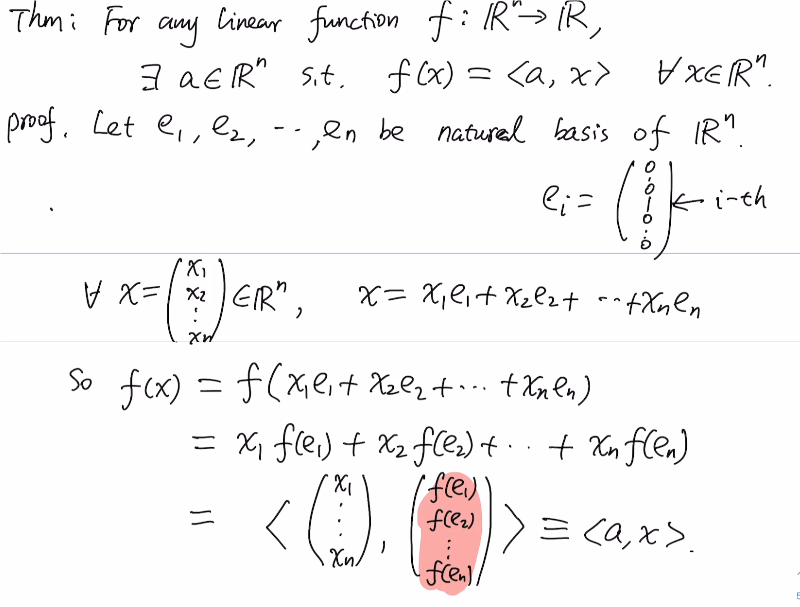 Thm: For any linear function f: ℝⁿ → ℝ,
∃ a∈ℝⁿ s.t. f(x) = <a, x> ∀ x∈ℝⁿ.
proof. Let e₁, e₂, ..., eₙ be natural basis of ℝⁿ.
eᵢ = (0 ⋮ 0 1 0 ⋮ 0) ← i-th
∀ x = (x₁ x₂ ⋮ xₙ) ∈ℝⁿ, x = x₁e₁ + x₂e₂ + ... + xₙeₙ
So f(x) = f(x₁e₁ + x₂e₂ + ... + xₙeₙ)
= x₁ f(e₁) + x₂ f(e₂) + ... + xₙ f(eₙ)
= < (x₁ ⋮ xₙ), (f(e₁) f(e₂) ⋮ f(eₙ)) > ≡ <a, x>.